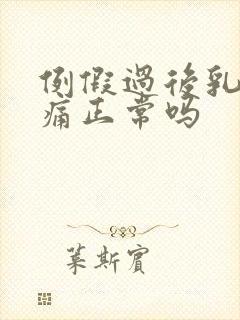 例假過後乳
痛正常吗
葉斯賓